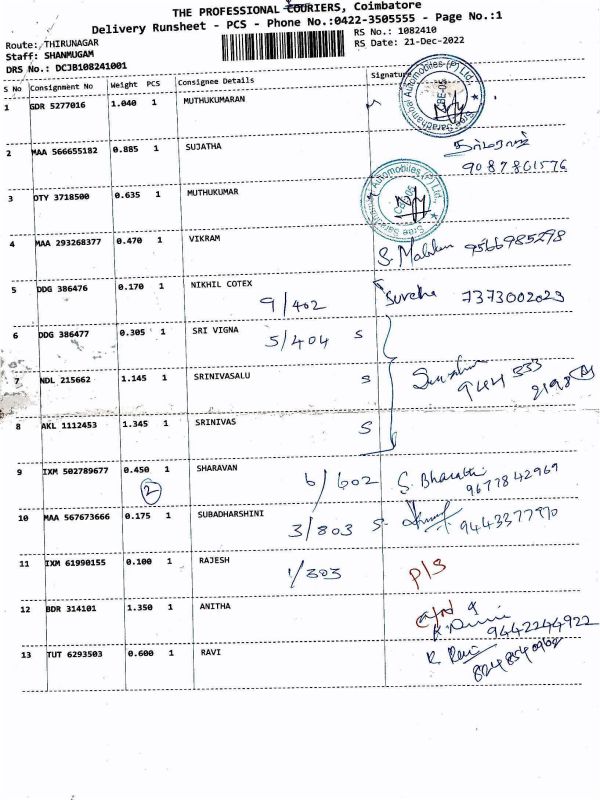 THE PROFESSIONAL COURIERS, Coimbatore
Delivery Runsheet - PCS - Phone No.:0422-3505555 - Page No.:1
Route: THIRUNAGAR
RS No.: 1082410
Staff: SHANMUGAM
RS Date: 21-Dec-2022
DRS No.: DCJB108241001
S No Consignment No Weight PCS Consignee Details Signature
1 GDR 5277016 1.040 1 MUTHUKUMARAN
2 MAA 566655182 0.885 1 SUJATHA
9087861576
3 DTY 3718500 0.635 1 MUTHUKUMAR
4 MAA 293268377 0.470 1 VIKRAM 9566985298
5 DDG 386476 0.170 1 NIKHIL COTEX
9/402 Surekha 7373002023
6 DDG 386477 0.305 1 SRI VIGNA
5/404 S
7 NDL 215662 1.145 1 SRINIVASALU S
8 AKL 1112453 1.345 1 SRINIVAS S
9 IXM 502789677 0.450 1 SHARAVAN
2 6/602 S. Bharathi
9677842969
10 MAA 567673666 0.175 1 SUBADHARSHINI
3/803 S. 9443377970
11 IXM 61990155 0.100 1 RAJESH
1/303 P/S
12 BDR 314101 1.350 1 ANITHA
9442244922
13 TUT 6293503 0.600 1 RAVI R. Ravi